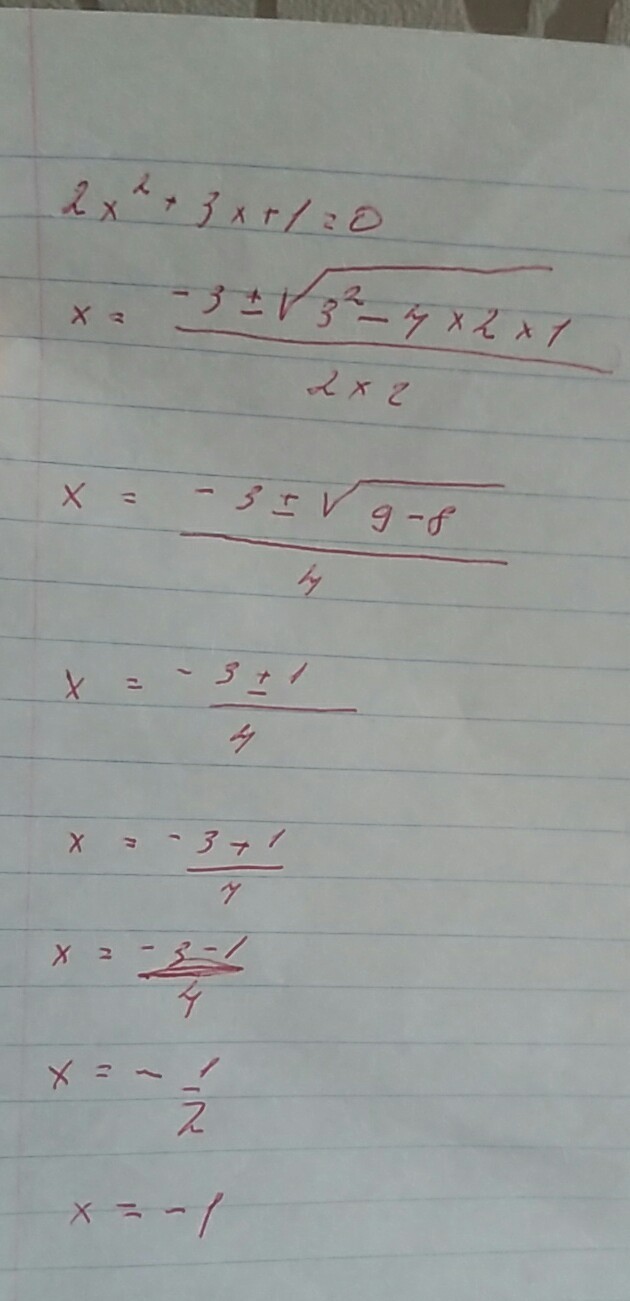 2x² + 3x + 1 = 0
x = (-3 ± √(3² - 4 × 2 × 1)) / (2 × 2)
x = (-3 ± √(9 - 8)) / 4
x = (-3 ± 1) / 4
x = (-3 + 1) / 4
x = (-3 - 1) / 4
x = - 1/2
x = -1